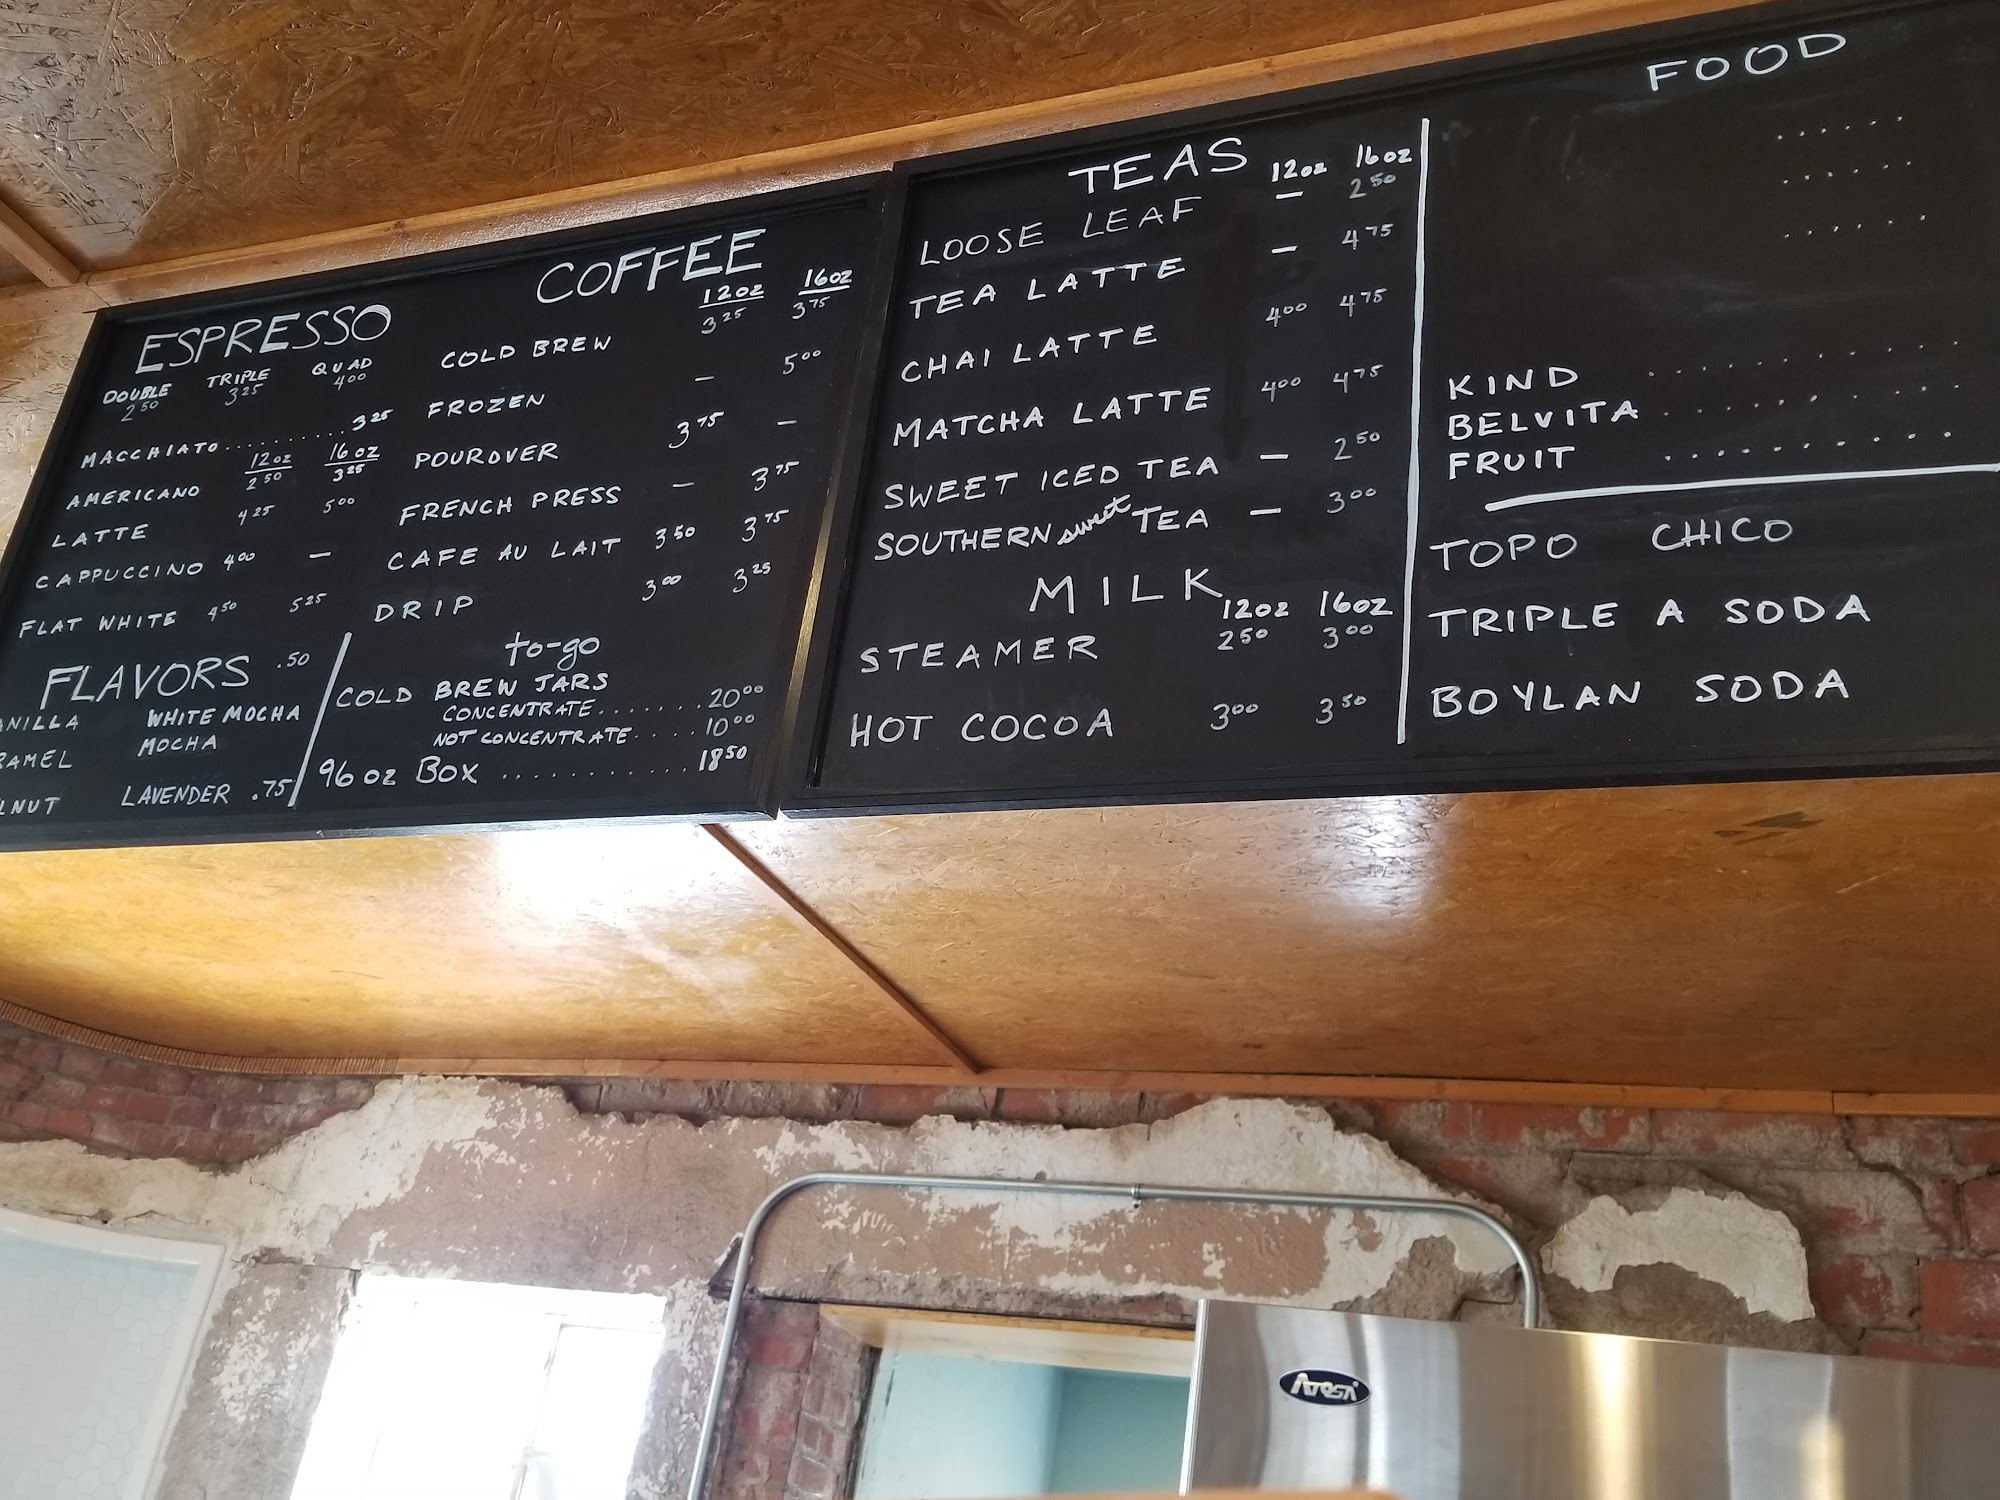 ESPRESSO
DOUBLE TRIPLE QUAD
2.50 3.25 4.00
MACCHIATO.......... 3.25
12oz 16oz
AMERICANO 2.50 3.25
LATTE 4.25 5.00
CAPPUCCINO 4.00 —
FLAT WHITE 4.50 5.25
FLAVORS .50
ANILLA WHITE MOCHA
RAMEL MOCHA
LNUT LAVENDER .75
COFFEE
12oz 16oz
COLD BREW 3.25 3.75
FROZEN — 5.00
POUROVER 3.75 —
FRENCH PRESS — 3.75
CAFE AU LAIT 3.50 3.75
DRIP 3.00 3.25
to-go
COLD BREW JARS
CONCENTRATE.......20.00
NOT CONCENTRATE.....10.00
96 oz BOX ........... 18.50
TEAS 12oz 16oz
LOOSE LEAF — 2.50
TEA LATTE — 4.75
CHAI LATTE 4.00 4.75
MATCHA LATTE 4.00 4.75
SWEET ICED TEA — 2.50
SOUTHERN sweet TEA — 3.00
MILK 12oz 16oz
STEAMER 2.50 3.00
HOT COCOA 3.00 3.50
FOOD
......
......
......
KIND ..........
BELVITA ..........
FRUIT ..........
TOPO CHICO
TRIPLE A SODA
BOYLAN SODA
Atosa